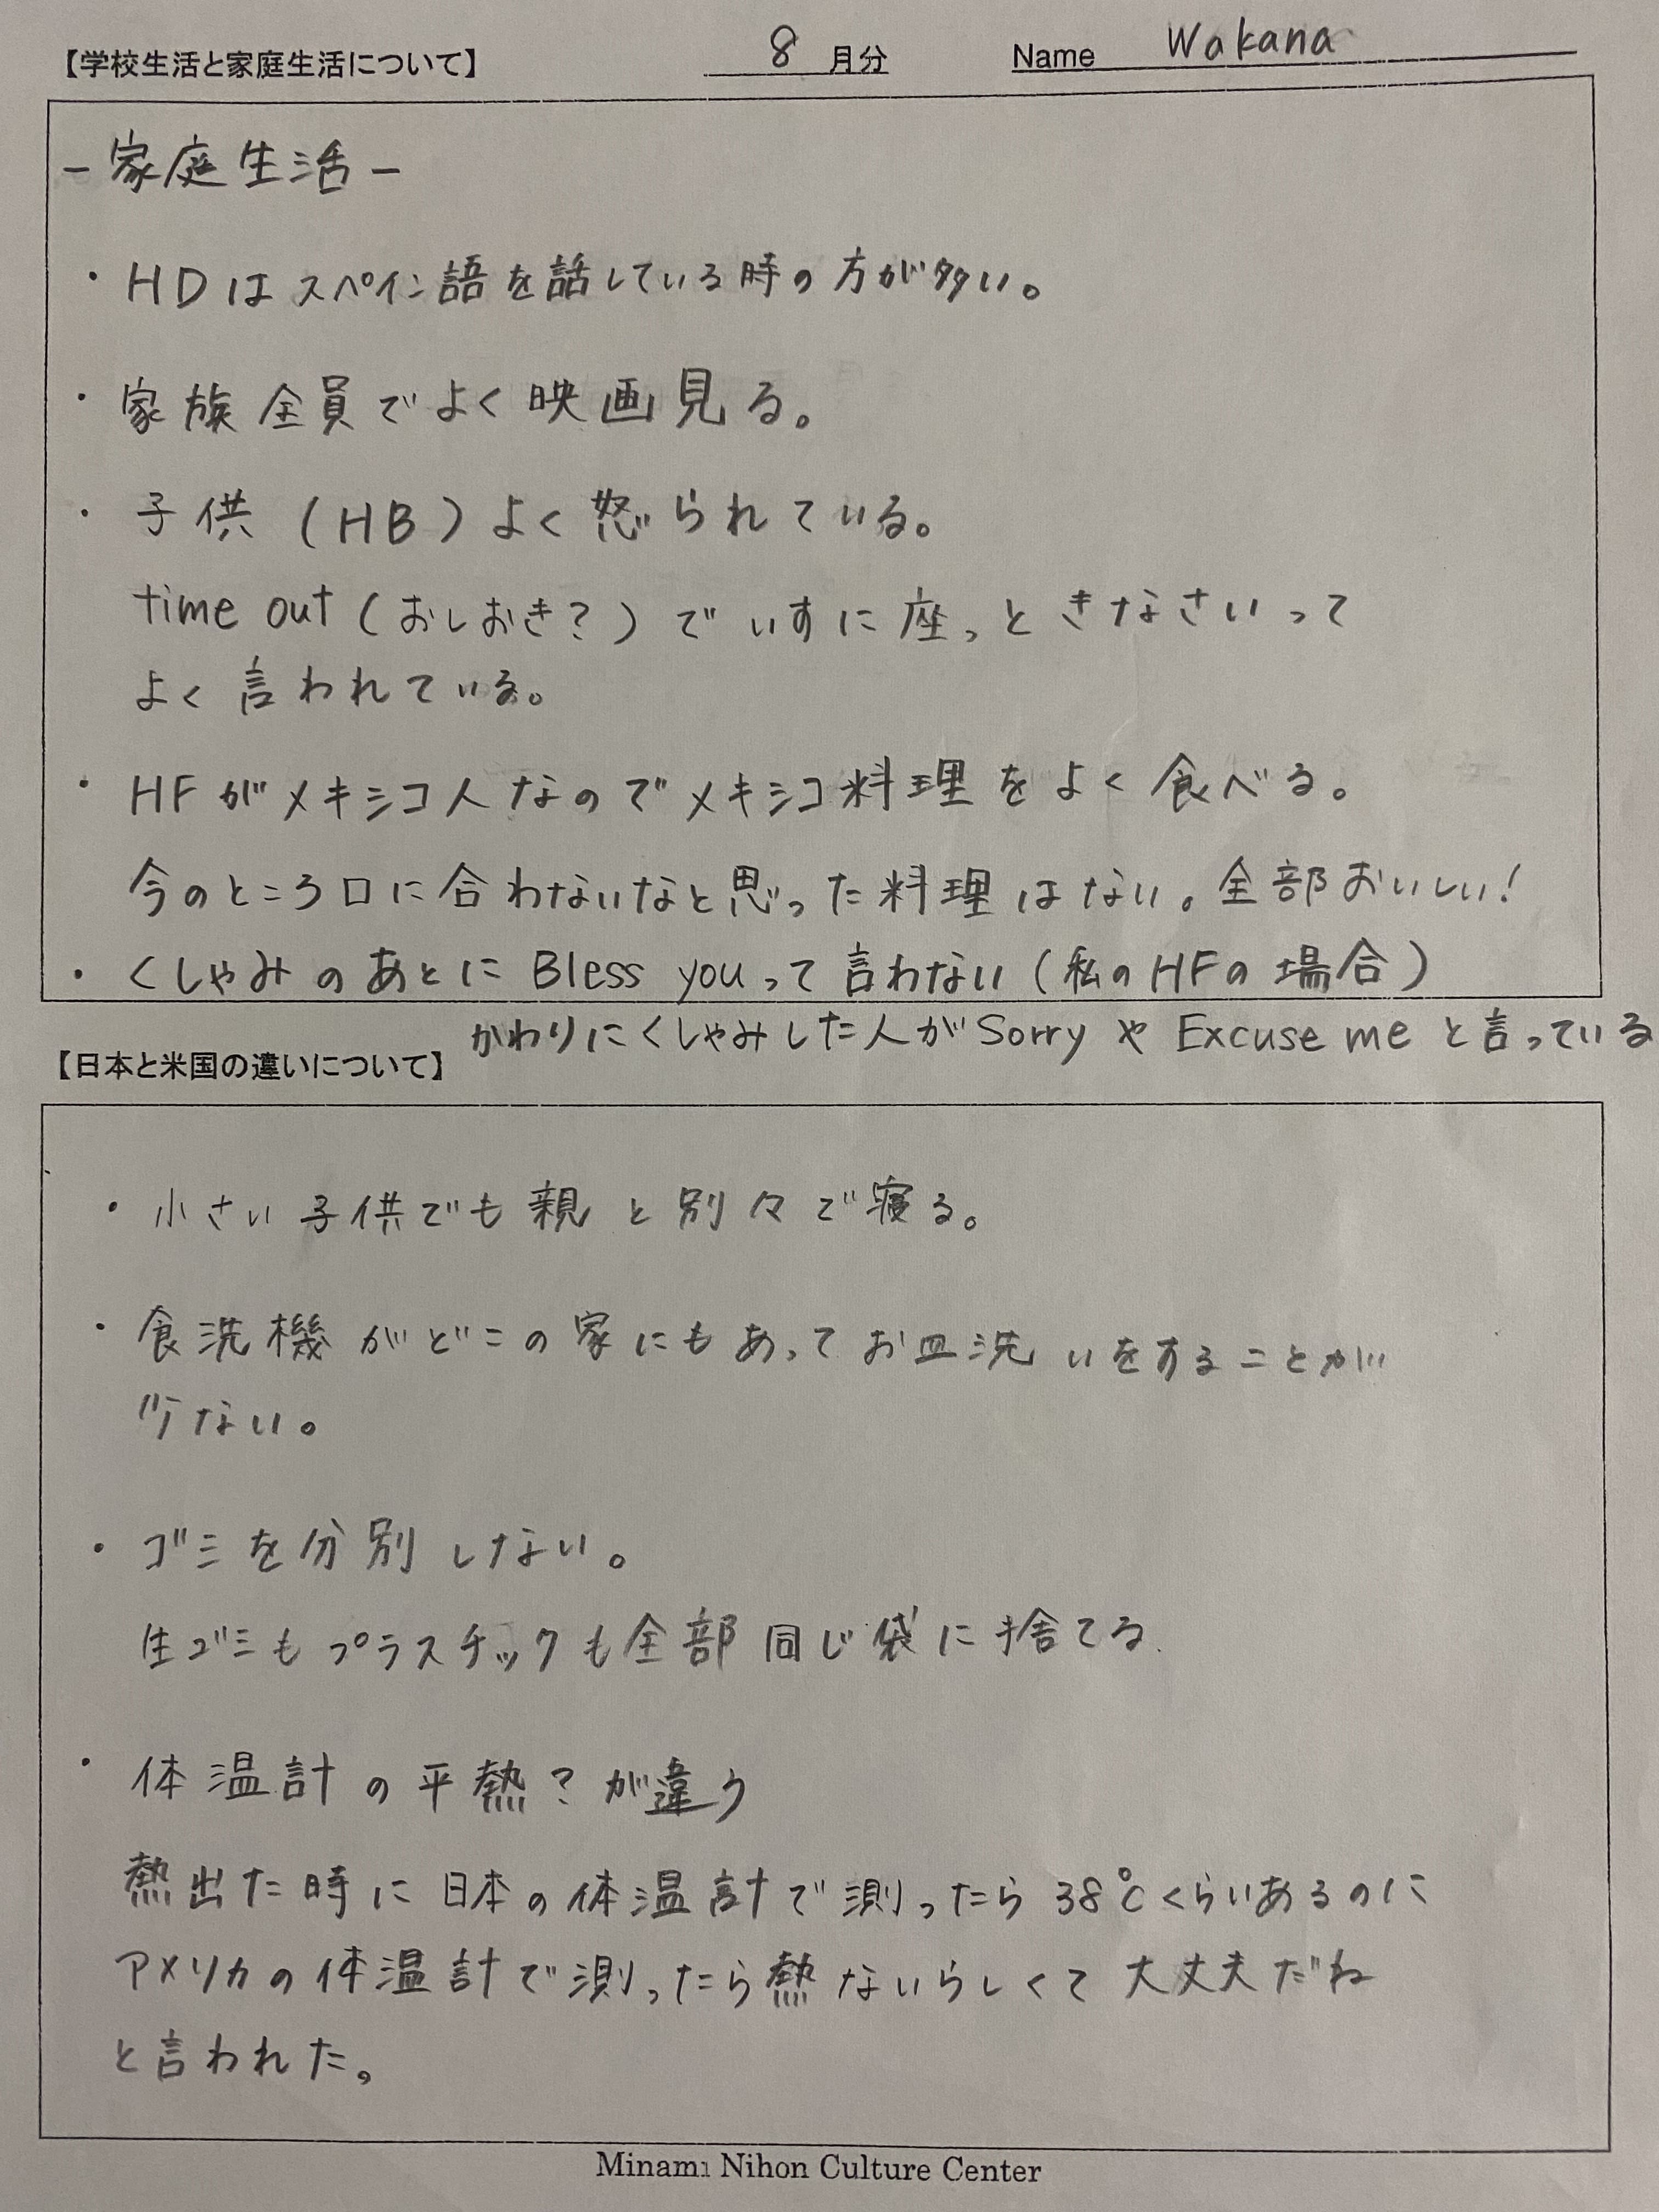 【学校生活と家庭生活について】 8 月分 Name Wakana
- 家庭生活 -
・HDはスペイン語を話している時の方が多い。
・家族全員でよく映画見る。
・子供(HB)よく怒られている。
time out(おしおき?)でいすに座っときなさいって
よく言われている。
・HFがメキシコ人なのでメキシコ料理をよく食べる。
今のところ口に合わないなと思った料理はない。全部おいしい!
・くしゃみのあとにBless youって言わない(私のHFの場合)
かわりにくしゃみした人がSorryやExcuse meと言っている
【日本と米国の違いについて】
・小さい子供でも親と別々で寝る。
・食洗機がどこの家にもあってお皿洗いをすることが
少ない。
・ゴミを分別しない。
生ゴミもプラスチックも全部同じ袋に捨てる.
・体温計の平熱?が違う
熱出た時に日本の体温計で測ったら38℃くらいあるのに
アメリカの体温計で測ったら熱ないらしくて大丈夫だね
と言われた。
Minami Nihon Culture Center